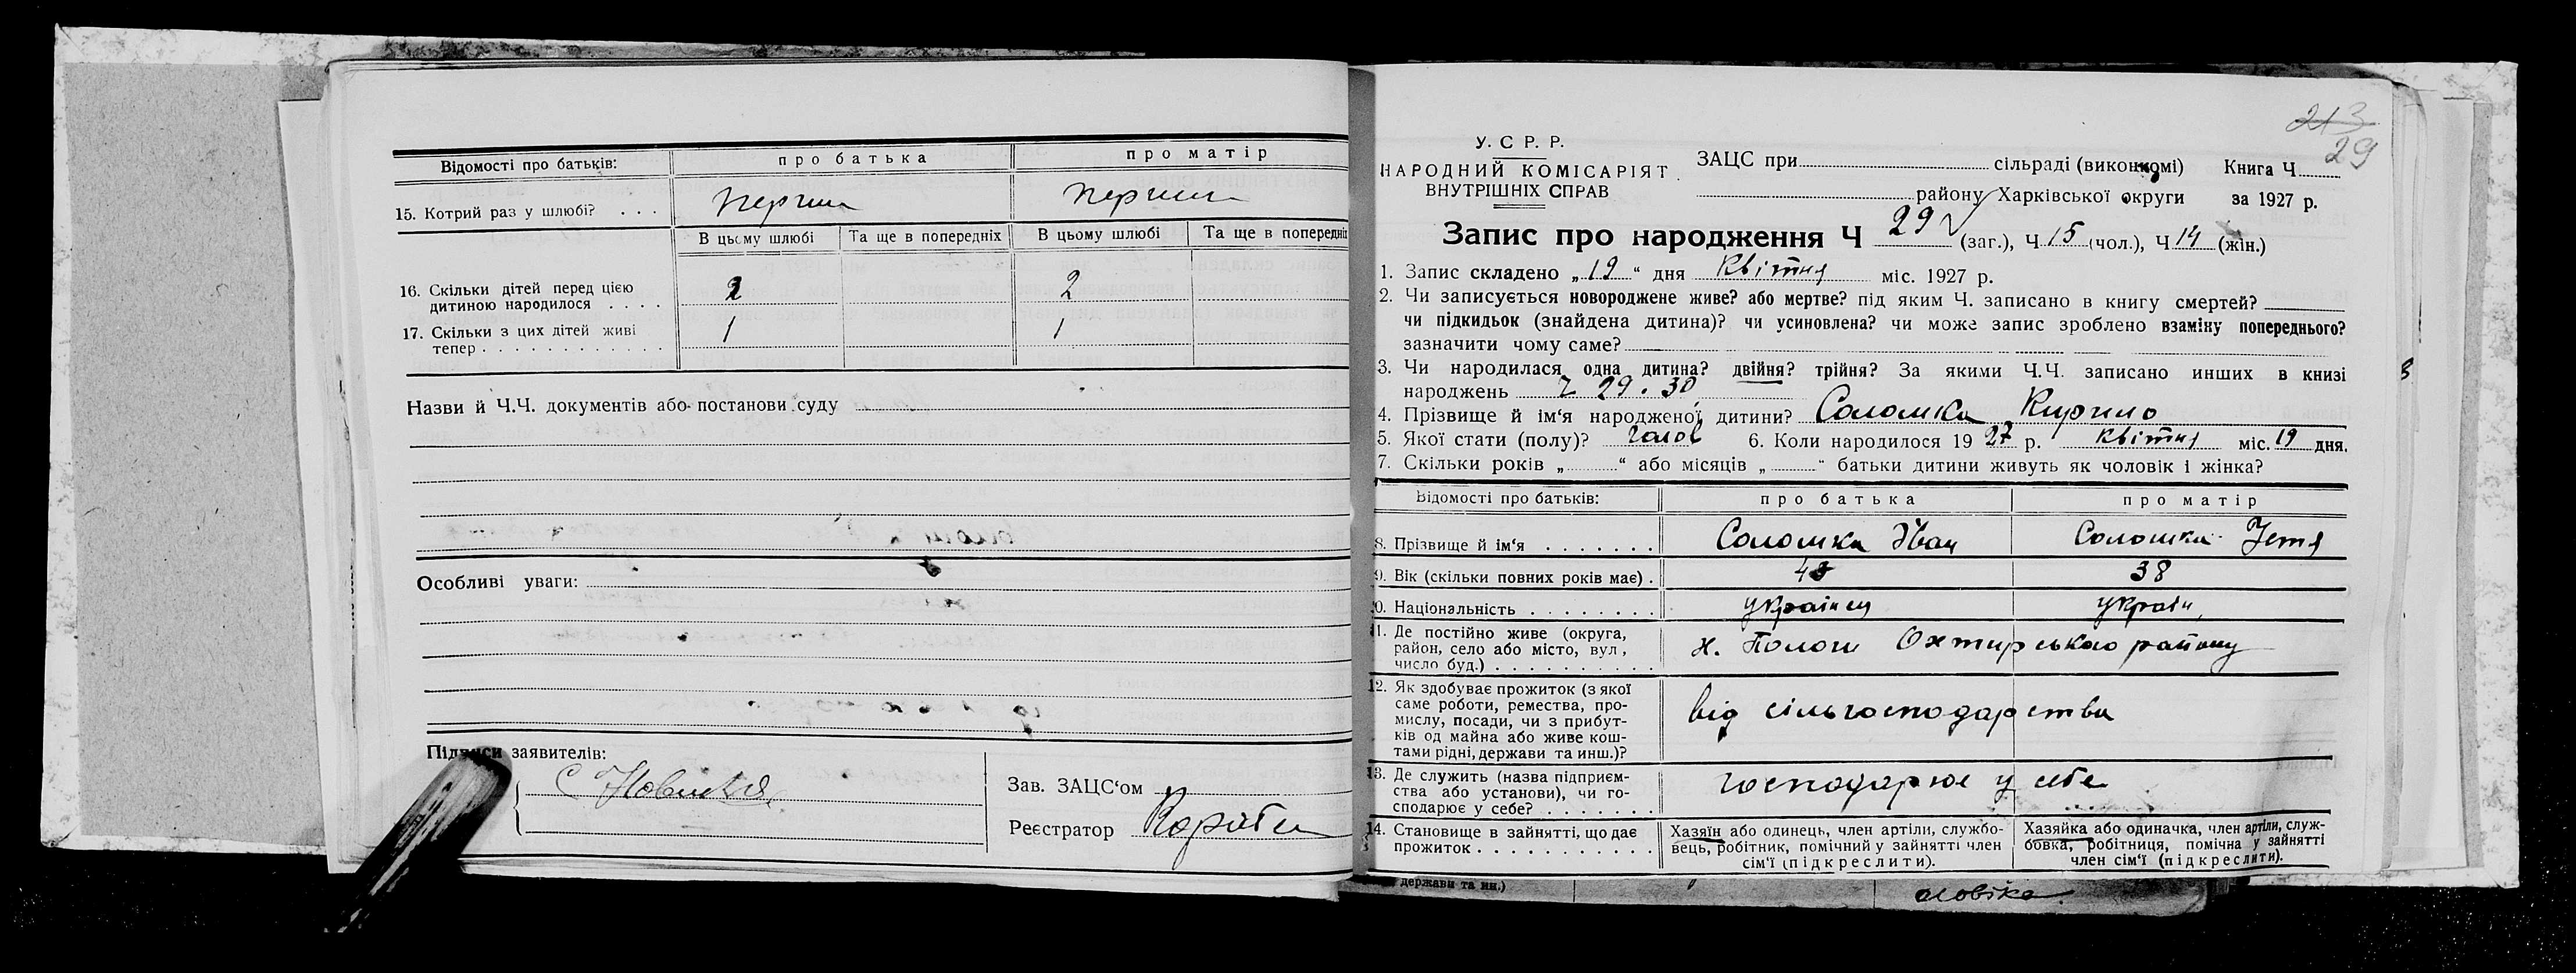 Відомості про батьків: про батька про матір
15. Котрий раз у шлюбі? . . . перший перший
В цьому шлюбі Та ще в попередніх В цьому шлюбі Та ще в попередніх
16. Скільки дітей перед цією
дитиною народилося . . . . 2 2
17. Скільки з цих дітей живі
тепер . . . . . . . . . . . . 1 1
Назви й Ч.Ч. документів або постанови суду
Особливі уваги:
Підписи заявителів:
Зав. ЗАЦС'ом
Реєстратор
213
29
У. С Р. Р.
НАРОДНИЙ КОМІСАРІЯТ
ВНУТРІШНІХ СПРАВ
ЗАЦС при сільраді (виконкомі) Книга Ч
району Харківської округи за 1927 р.
Запис про народження Ч 29 (заг.), Ч 15 (чол.), Ч 14 (жін.)
1. Запис складено „ 19 “ дня квітня міс. 1927 р.
2. Чи записується новороджене живе? або мертве? під яким Ч. записано в книгу смертей?
чи підкидьок (знайдена дитина)? чи усиновлена? чи може запис зроблено взаміну попереднього?
зазначити чому саме?
3. Чи народилася одна дитина? двійня? трійня? За якими Ч.Ч. записано инших в книзі
народжень 29. 30
4. Прізвище й ім'я народженої дитини? Соломка Кирило
5. Якої стати (полу)? чолов 6. Коли народилося 19 27 р. квітня міс. 19 дня.
7. Скільки років „ “ або місяців „ “ батьки дитини живуть як чоловік і жінка?
Відомості про батьків: про батька про матір
8. Прізвище й ім'я . . . . . . . Соломка Іван Соломка Устя
9. Вік (скільки повних років має) . 38
10. Національність . . . . . . . . українец україн.
11. Де постійно живе (округа,
район, село або місто, вул.,
число буд.) . . . . . . . . . . . х. Пологи Охтирського району
12. Як здобуває прожиток (з якої
саме роботи, ремества, про-
мислу, посади, чи з прибут-
ків од майна або живе кош-
тами рідні, держави та инш.)? від сільгосподарства
13. Де служить (назва підприєм-
ства або установи), чи го-
сподарює у себе? . . . . . . господарює у себе
14. Становище в зайнятті, що дає
прожиток . . . . . . . . . . .
Хазяїн або одинець, член артіли, службо-
вець, робітник, помічний у зайнятті член
сім'ї (підкреслити).
Хазяйка або одиначка, член артіли, служ-
бовка, робітниця, помічна у зайнятті
член сім'ї (підкреслити).
держави та ин.)